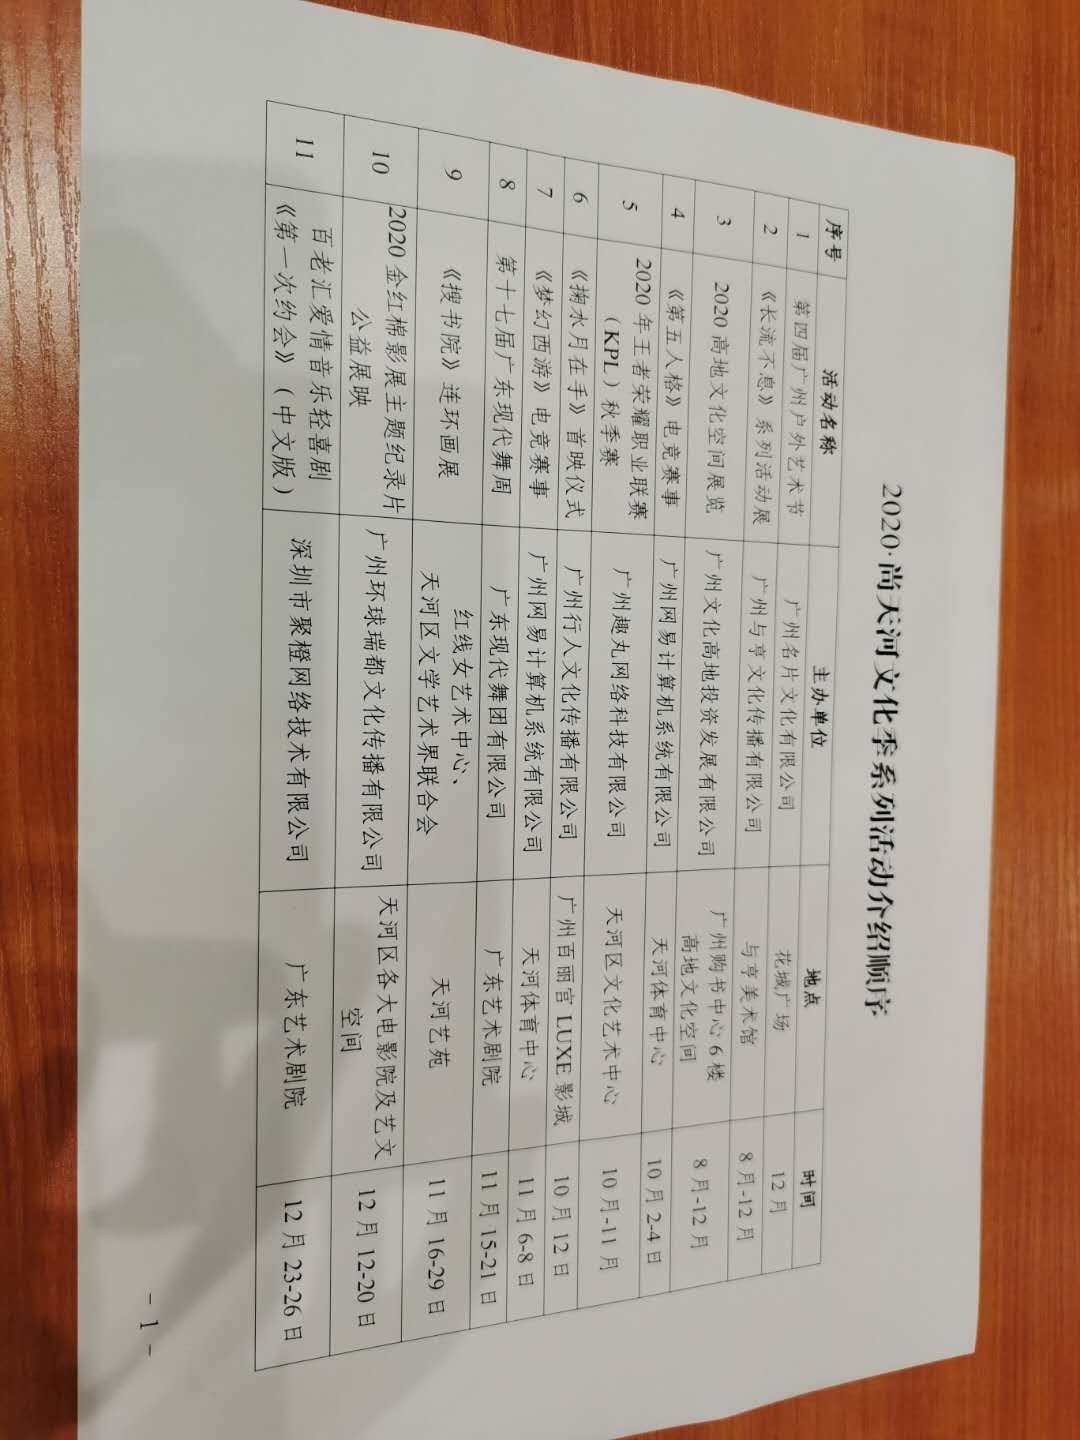 2020·尚天河文化季系列活动介绍顺序
序号 活动名称 主办单位 地点 时间
1 第四届广州户外艺术节 广州名片文化有限公司 花城广场 12月
2 《长流不息》系列活动展 广州与亨文化传播有限公司 与亨美术馆 8月-12月
3 2020高地文化空间展览 广州文化高地投资发展有限公司 广州购书中心6楼 8月-12月
高地文化空间
4 《第五人格》电竞赛事 广州网易计算机系统有限公司 天河体育中心 10月2-4日
5 2020年王者荣耀职业联赛 广州趣丸网络科技有限公司 天河区文化艺术中心 10月-11月
（KPL）秋季赛
6 《掬水月在手》首映仪式 广州行人文化传播有限公司 广州百丽宫LUXE影城 10月12日
7 《梦幻西游》电竞赛事 广州网易计算机系统有限公司 天河体育中心 11月6-8日
8 第十七届广东现代舞周 广东现代舞团有限公司 广东艺术剧院 11月15-21日
9 《搜书院》连环画展 红线女艺术中心、 天河艺苑 11月16-29日
天河区文学艺术界联合会
10 2020金红棉影展主题纪录片 广州环球瑞都文化传播有限公司 天河区各大电影院及艺文 12月12-20日
公益展映 空间
11 百老汇爱情音乐轻喜剧 深圳市聚橙网络技术有限公司 广东艺术剧院 12月23-26日
《第一次约会》（中文版）
- 1 -